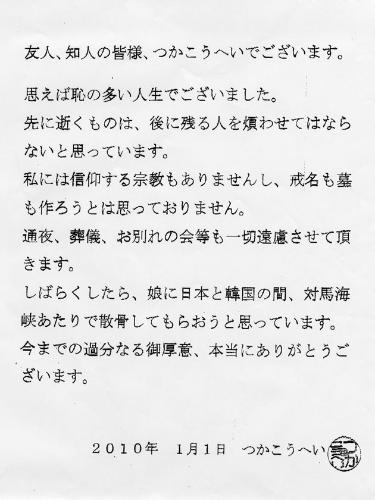 友人、知人の皆様、つかこうへいでございます。
思えば恥の多い人生でございました。
先に逝くものは、後に残る人を煩わせてはなら
ないと思っています。
私には信仰する宗教もありませんし、戒名も墓
も作ろうとは思っておりません。
通夜、葬儀、お別れの会等も一切遠慮させて頂
きます。
しばらくしたら、娘に日本と韓国の間、対馬海
峡あたりで散骨してもらおうと思っています。
今までの過分なる御厚意、本当にありがとうご
ざいます。
2010年 1月1日 つかこうへい